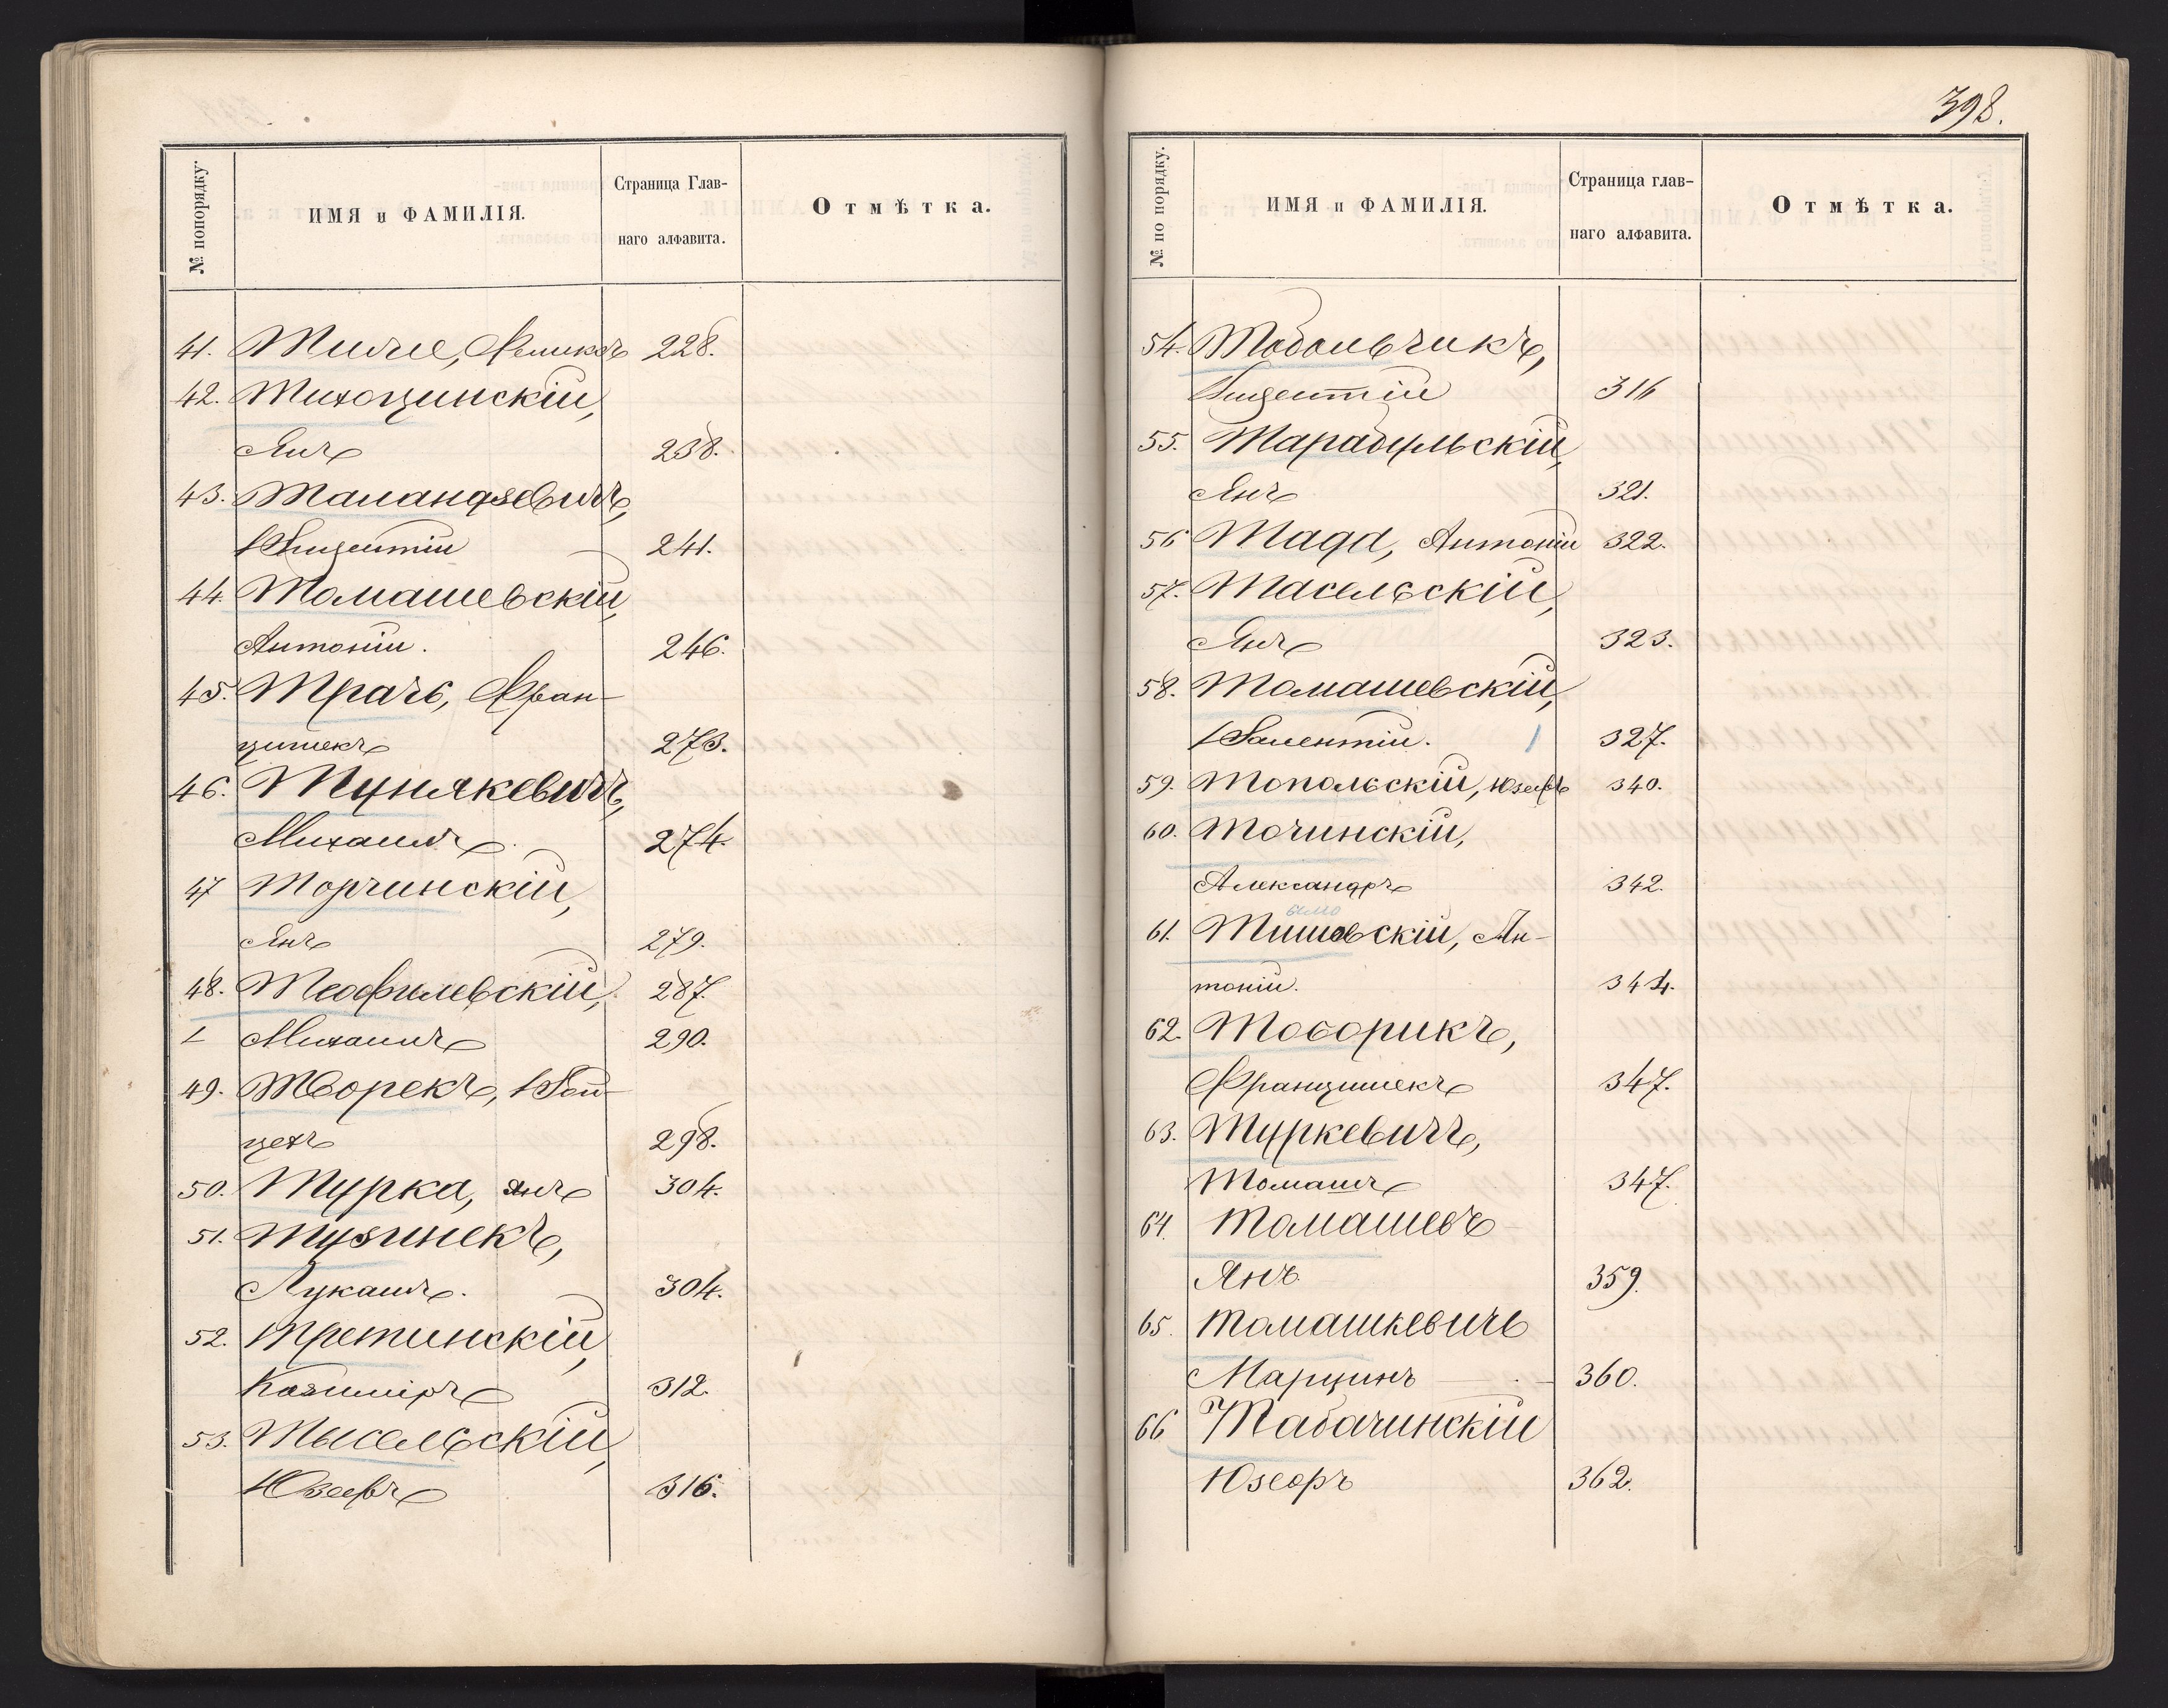 № попорядку.
ИМЯ и ФАМИЛІЯ.
Страница Глав-
наго алфавита.
Отмѣтка.
41. Тилле, Феликсъ 228.
42. Тихоцинскій,
Янъ 238.
43. Таландзевичъ,
Винцентій 241.
44. Томашевскій,
Антоній. 246.
45. Трачъ, Фран-
цишекъ 273.
46. Тунякевичъ,
Михаилъ 274.
47 Торчинскій,
Янъ 279.
48. Теофилевскій, 287.
Михаилъ 290.
49. Творекъ, Вой-
цехъ 298.
50. Турка, Янъ 304.
51. Тузинекъ,
Лукашъ. 304.
52. Третинскій,
Казиміръ 312.
53. Тысельскій,
Юзефъ 316.
398.
№ по порядку.
ИМЯ и ФАМИЛІЯ.
Страница глав-
наго алфавита.
Отмѣтка.
54. Тобольчикъ,
Винцентій 316
55. Тарабульскій,
Янъ 321.
56 Тада, Антоній 322.
57. Тасельскій,
Янъ 323.
58. Томашевскій,
Валентій. 327.
59. Топольскій, Юзефъ 340.
60. Точинскій,
Александръ 342.
61. Тишовскій, Ан-
тоній. 344.
62. Товорикъ,
Францишекъ 347.
63. Туркевичъ,
Томашъ 347.
64. Томашевъ
Янъ 359.
65. Томашкевичъ
Марцинъ 360.
66 Табачинскій
Юзефъ 362.